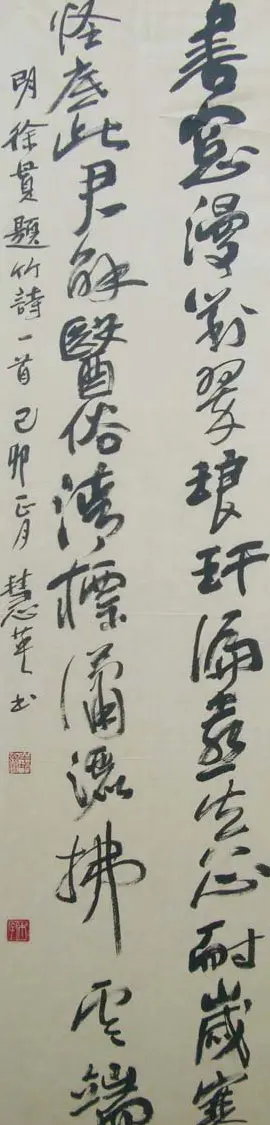 書窓漫對翠琅玕偏愛心耐歲寒
怪底此君解醫俗清標瀟灑拂雲端
明徐賁題竹詩一首己卯正月慧華書